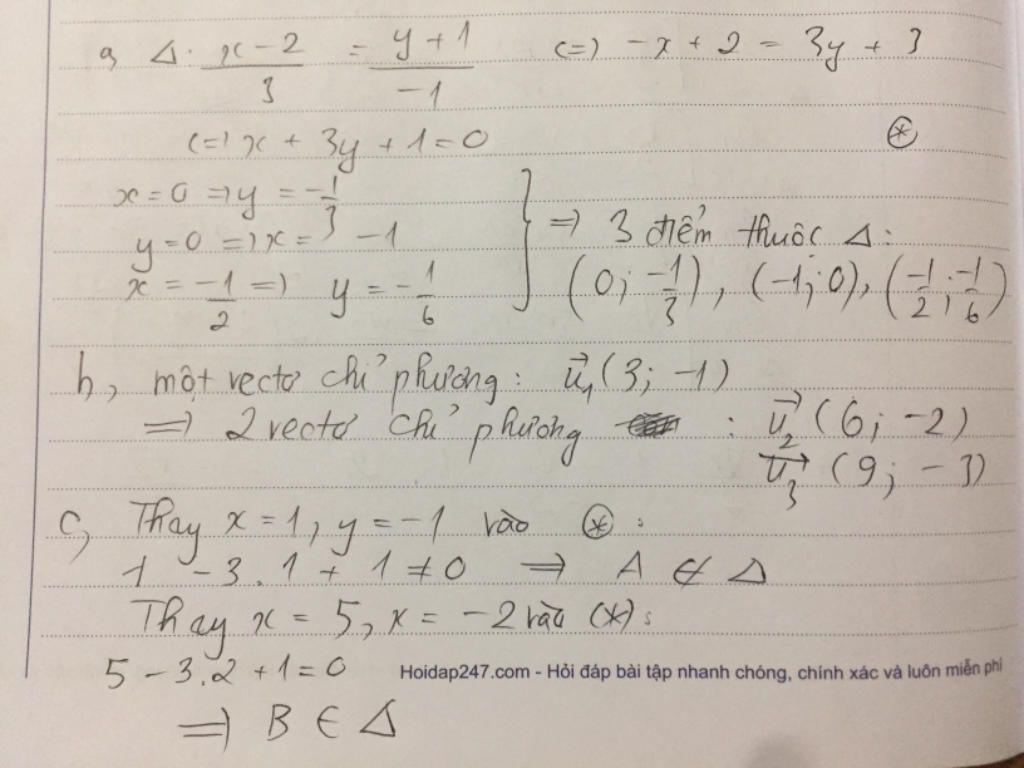 a, Δ: (x-2)/3 = (y+1)/-1 <=> -x + 2 = 3y + 3
<=> x + 3y + 1 = 0 (*)
x = 0 => y = -1/3
y = 0 => x = -1
x = -1/2 => y = -1/6
} => 3 điểm thuộc Δ:
(0; -1/3), (-1; 0), (-1/2; -1/6)
b, một vectơ chỉ phương: u₁→(3; -1)
=> 2 vectơ chỉ phương : u₂→(6; -2)
u₃→(9; -3)
c, Thay x = 1, y = -1 vào (*):
1 - 3.1 + 1 ≠ 0 => A ∉ Δ
Thay x = 5, x = -2 vào (*):
5 - 3.2 + 1 = 0
=> B ∈ Δ
Hoidap247.com - Hỏi đáp bài tập nhanh chóng, chính xác và luôn miễn phí